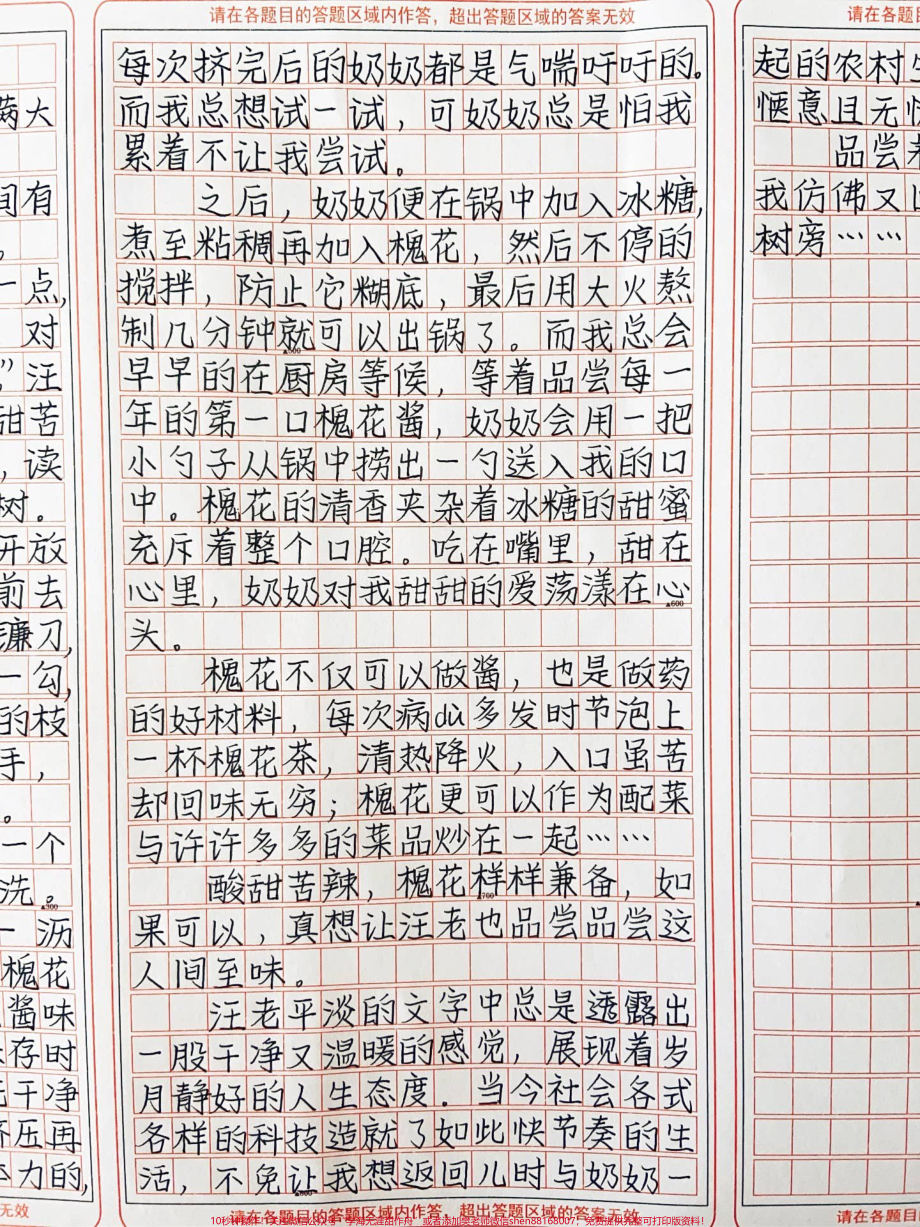 满大
间有
。
一点，
对
”汪
甜苦
，读
树。
开放
前去
镰刀，
一勾，
的枝
手，
。
一个
洗。
▲300
一沥
槐花
酱味
存时
干净
挤压再
力的，
无效
请在各题目的答题区域内作答，超出答题区域的答案无效
每次挤完后的奶奶都是气喘吁吁的。
而我总想试一试，可奶奶总是怕我
累着不让我尝试。
之后，奶奶便在锅中加入冰糖，
煮至粘稠再加入槐花，然后不停的
搅拌，防止它糊底，最后用大火熬
制几分钟就可以出锅了。而我总会
▲500
早早的在厨房等候，等着品尝每一
年的第一口槐花酱，奶奶会用一把
小勺子从锅中捞出一勺送入我的口
中。槐花的清香夹杂着冰糖的甜蜜
充斥着整个口腔。吃在嘴里，甜在
心里，奶奶对我甜甜的爱荡漾在心
▲600
头。
槐花不仅可以做酱，也是做药
的好材料，每次病dú多发时节泡上
一杯槐花茶，清热降火，入口虽苦
却回味无穷；槐花更可以作为配菜
与许许多多的菜品炒在一起……
酸甜苦辣，槐花样样兼备，如
▲700
果可以，真想让汪老也品尝品尝这
人间至味。
汪老平淡的文字中总是透露出
一股干净又温暖的感觉，展现着岁
月静好的人生态度．当今社会各式
各样的科技造就了如此快节奏的生
活，不免让我想返回儿时与奶奶一
▲800
请在各题目的答题区域内作答，超出答题区域的答案无效
请在各题目
起的农村生
惬意且无忧
品尝着
我仿佛又回
树旁……
请在各题目